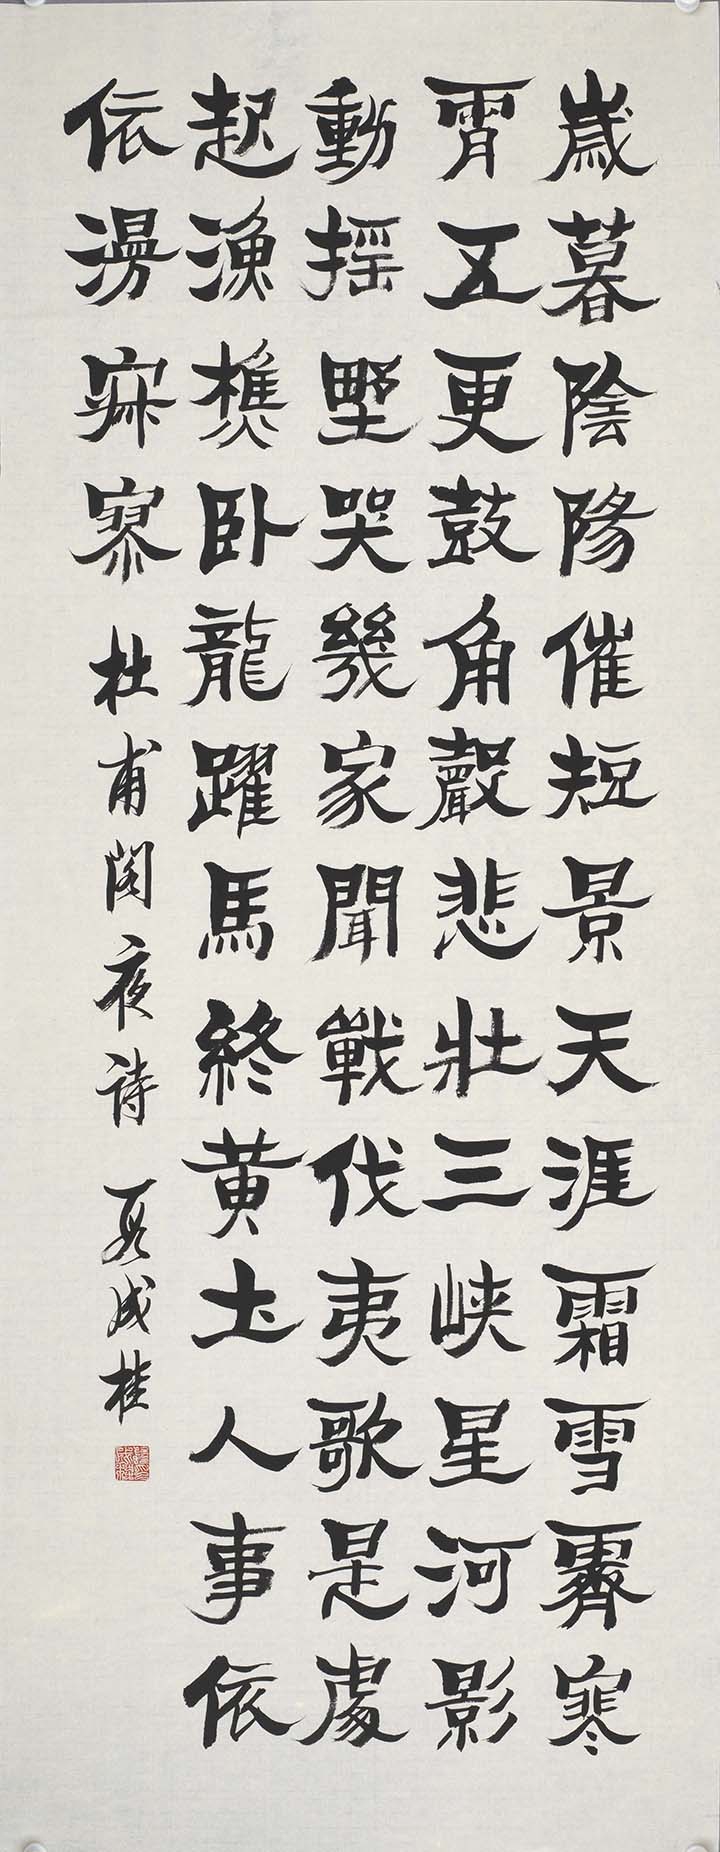 歲暮陰陽催短景天涯霜雪霽寒
霄五更鼓角聲悲壯三峡星河影
動摇墅哭幾家聞戰伐夷歌是處
起漁樵卧龍躍馬終黄土人事依
依漫寂寥 杜甫阁夜诗 段成桂